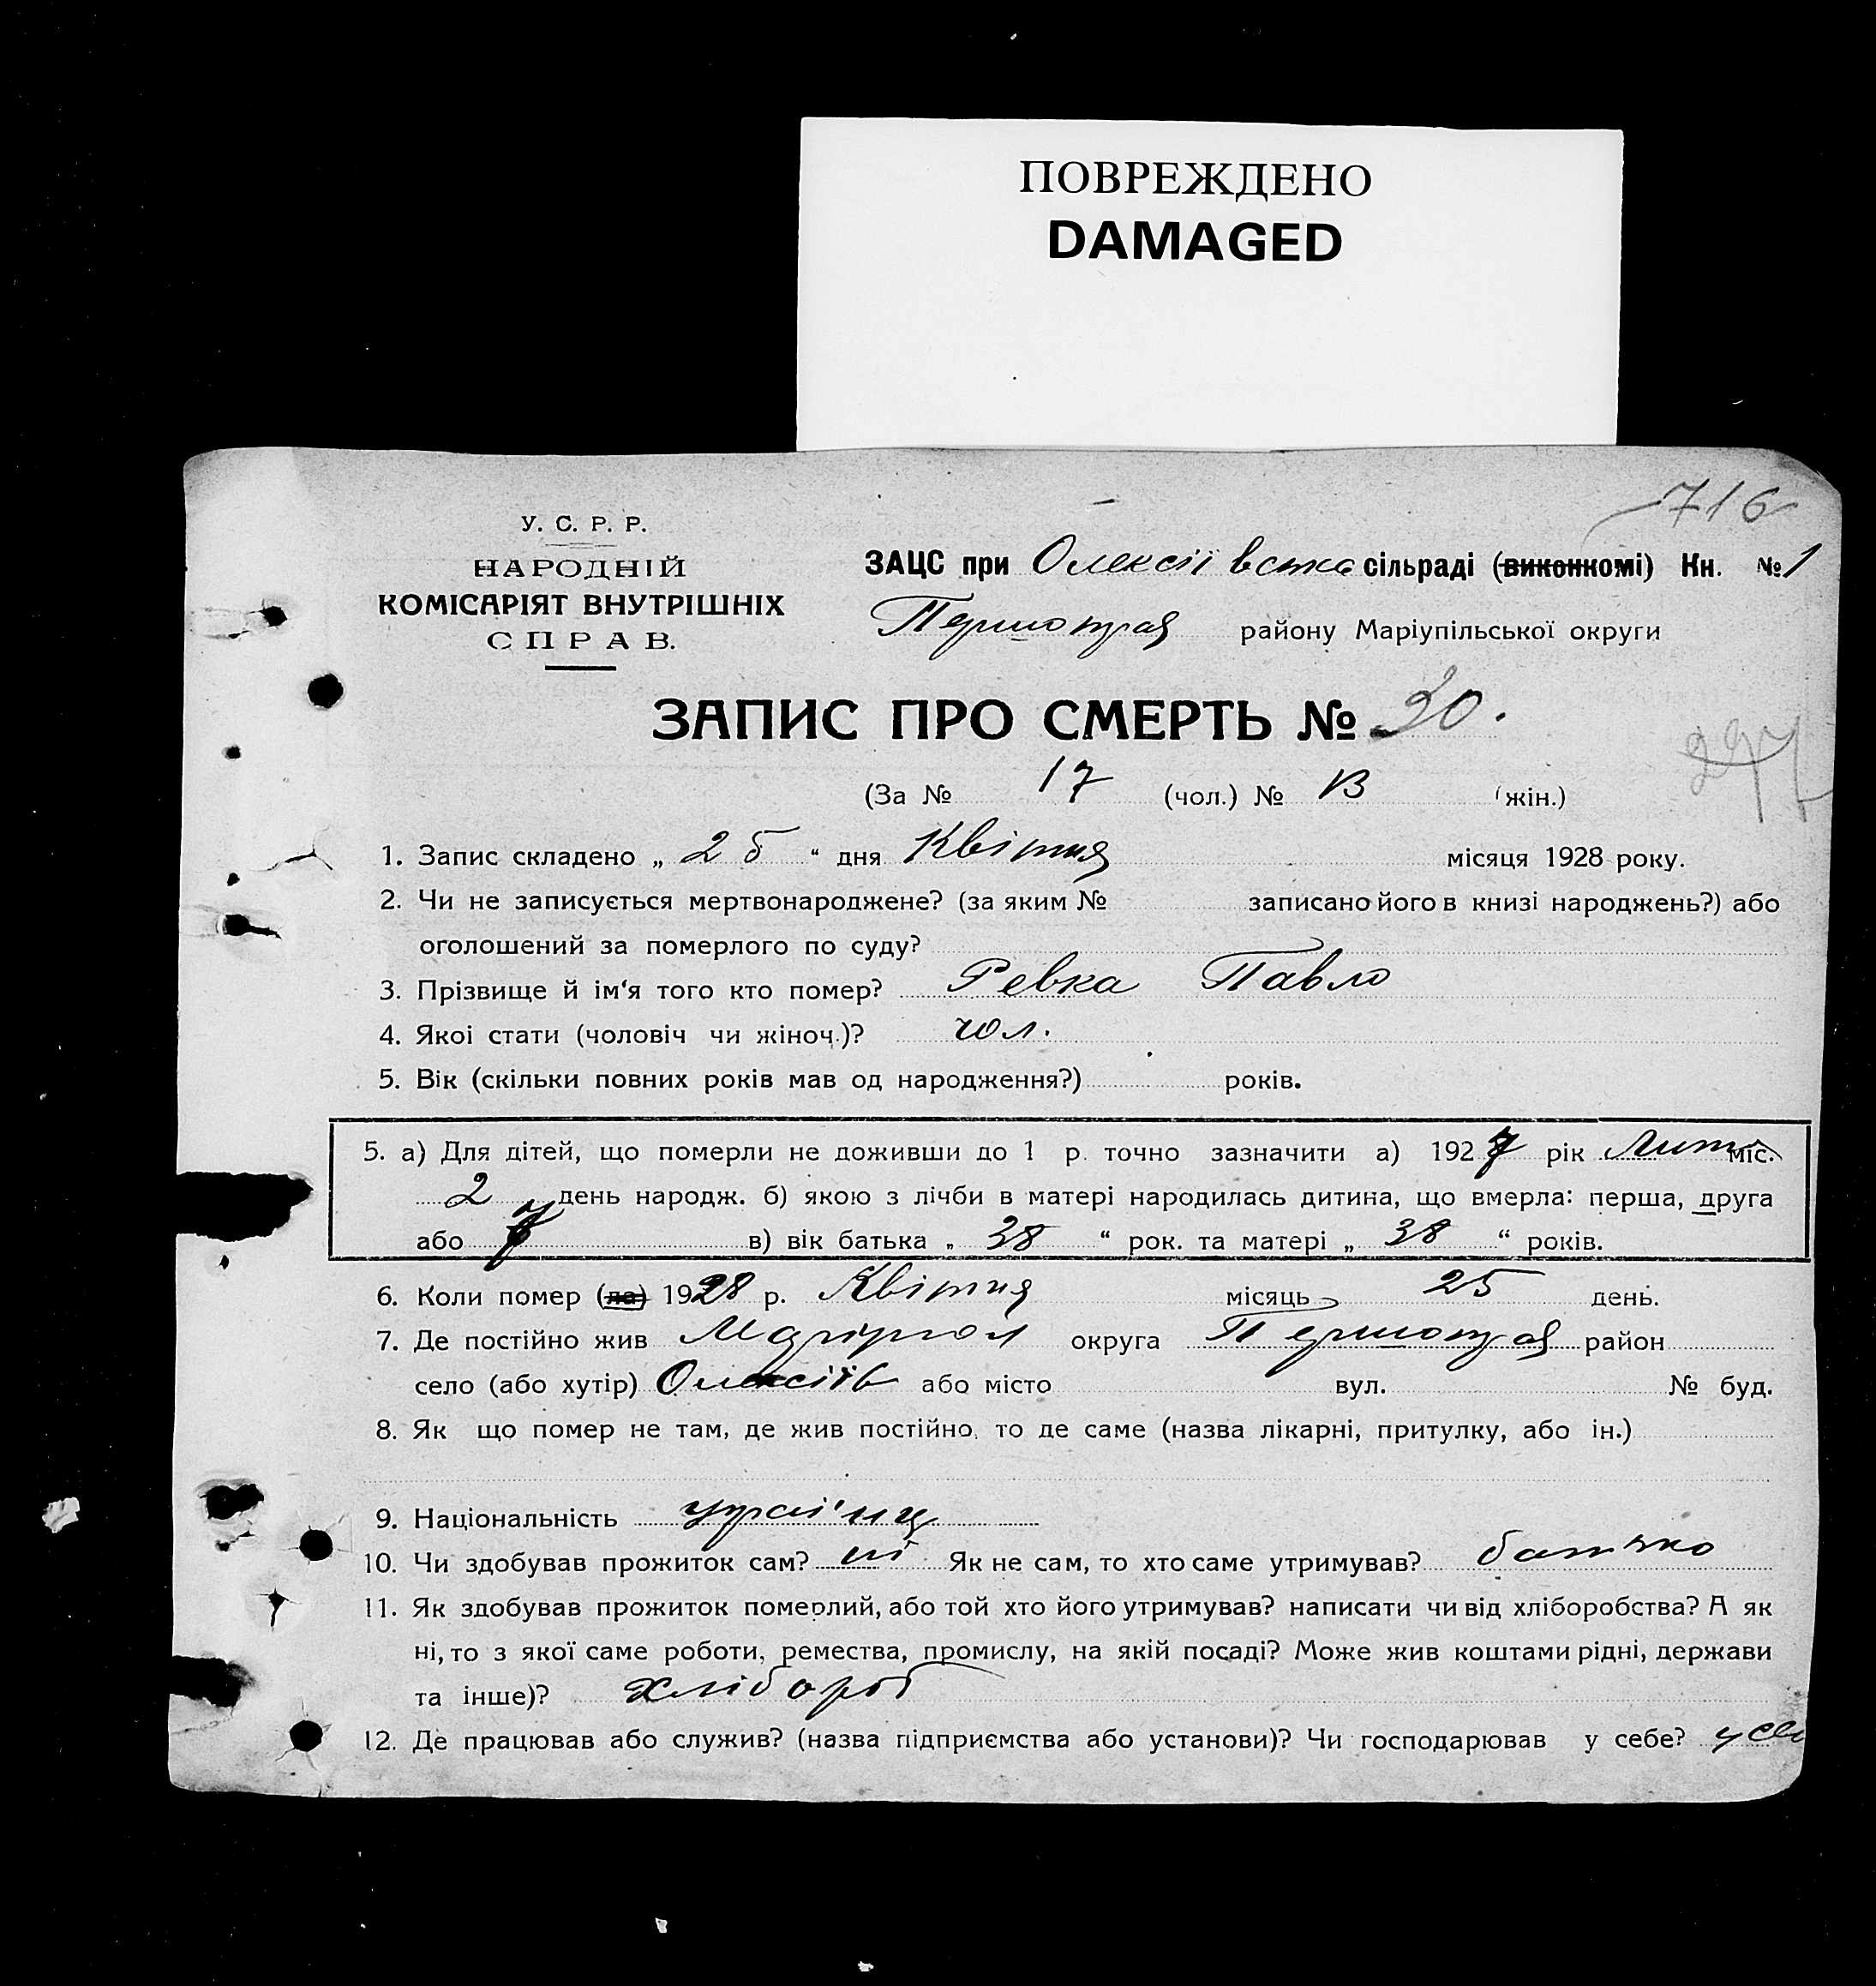 ПОВРЕЖДЕНО
DAMAGED
716
У. С. Р. Р.
НАРОДНІЙ
КОМІСАРІЯТ ВНУТРІШНІХ
СПРАВ.
ЗАЦС при Олексіївська сільраді (виконкомі) Кн. № 1
району Маріупільської округи
ЗАПИС ПРО СМЕРТЬ № 30.
297
(За № 17 (чол.) № 13 (жін.)
1. Запис складено „ 25 “ дня Квітня місяця 1928 року.
2. Чи не записується мертвонароджене? (за яким № записано його в книзі народжень?) або
оголошений за померлого по суду?
3. Прізвище й ім‘я того кто помер? Ревка Павло
4. Якоі стати (чоловіч чи жіноч.)? чол.
5. Вік (скільки повних років мав од народження?) років.
5. а) Для дітей, що померли не доживши до 1 р. точно зазначити а) 1927 рік Лит міс.
2 день народж. б) якою з лічби в матері народилась дитина, що вмерла: перша, друга
або 7 в) вік батька „ 38 “ рок. та матері „ 38 “ років.
6. Коли помер (ла) 1928 р. Квітня місяць 25 день.
7. Де постійно жив Маріупол округа район
село (або хутір) Олексіїв або місто вул. № буд.
8. Як що помер не там, де жив постійно, то де саме (назва лікарні, притулку, або ін.)
9. Національність україїнц
10. Чи здобував прожиток сам? ні Як не сам, то хто саме утримував? батько
11. Як здобував прожиток померлий, або той хто його утримував? написати чи від хліборобства? А як
ні, то з якої саме роботи, ремества, промислу, на якій посаді? Може жив коштами рідні, держави
та інше)? хлібороб
12. Де працював або служив? (назва підприємства або установи)? Чи господарював у себе? у себ